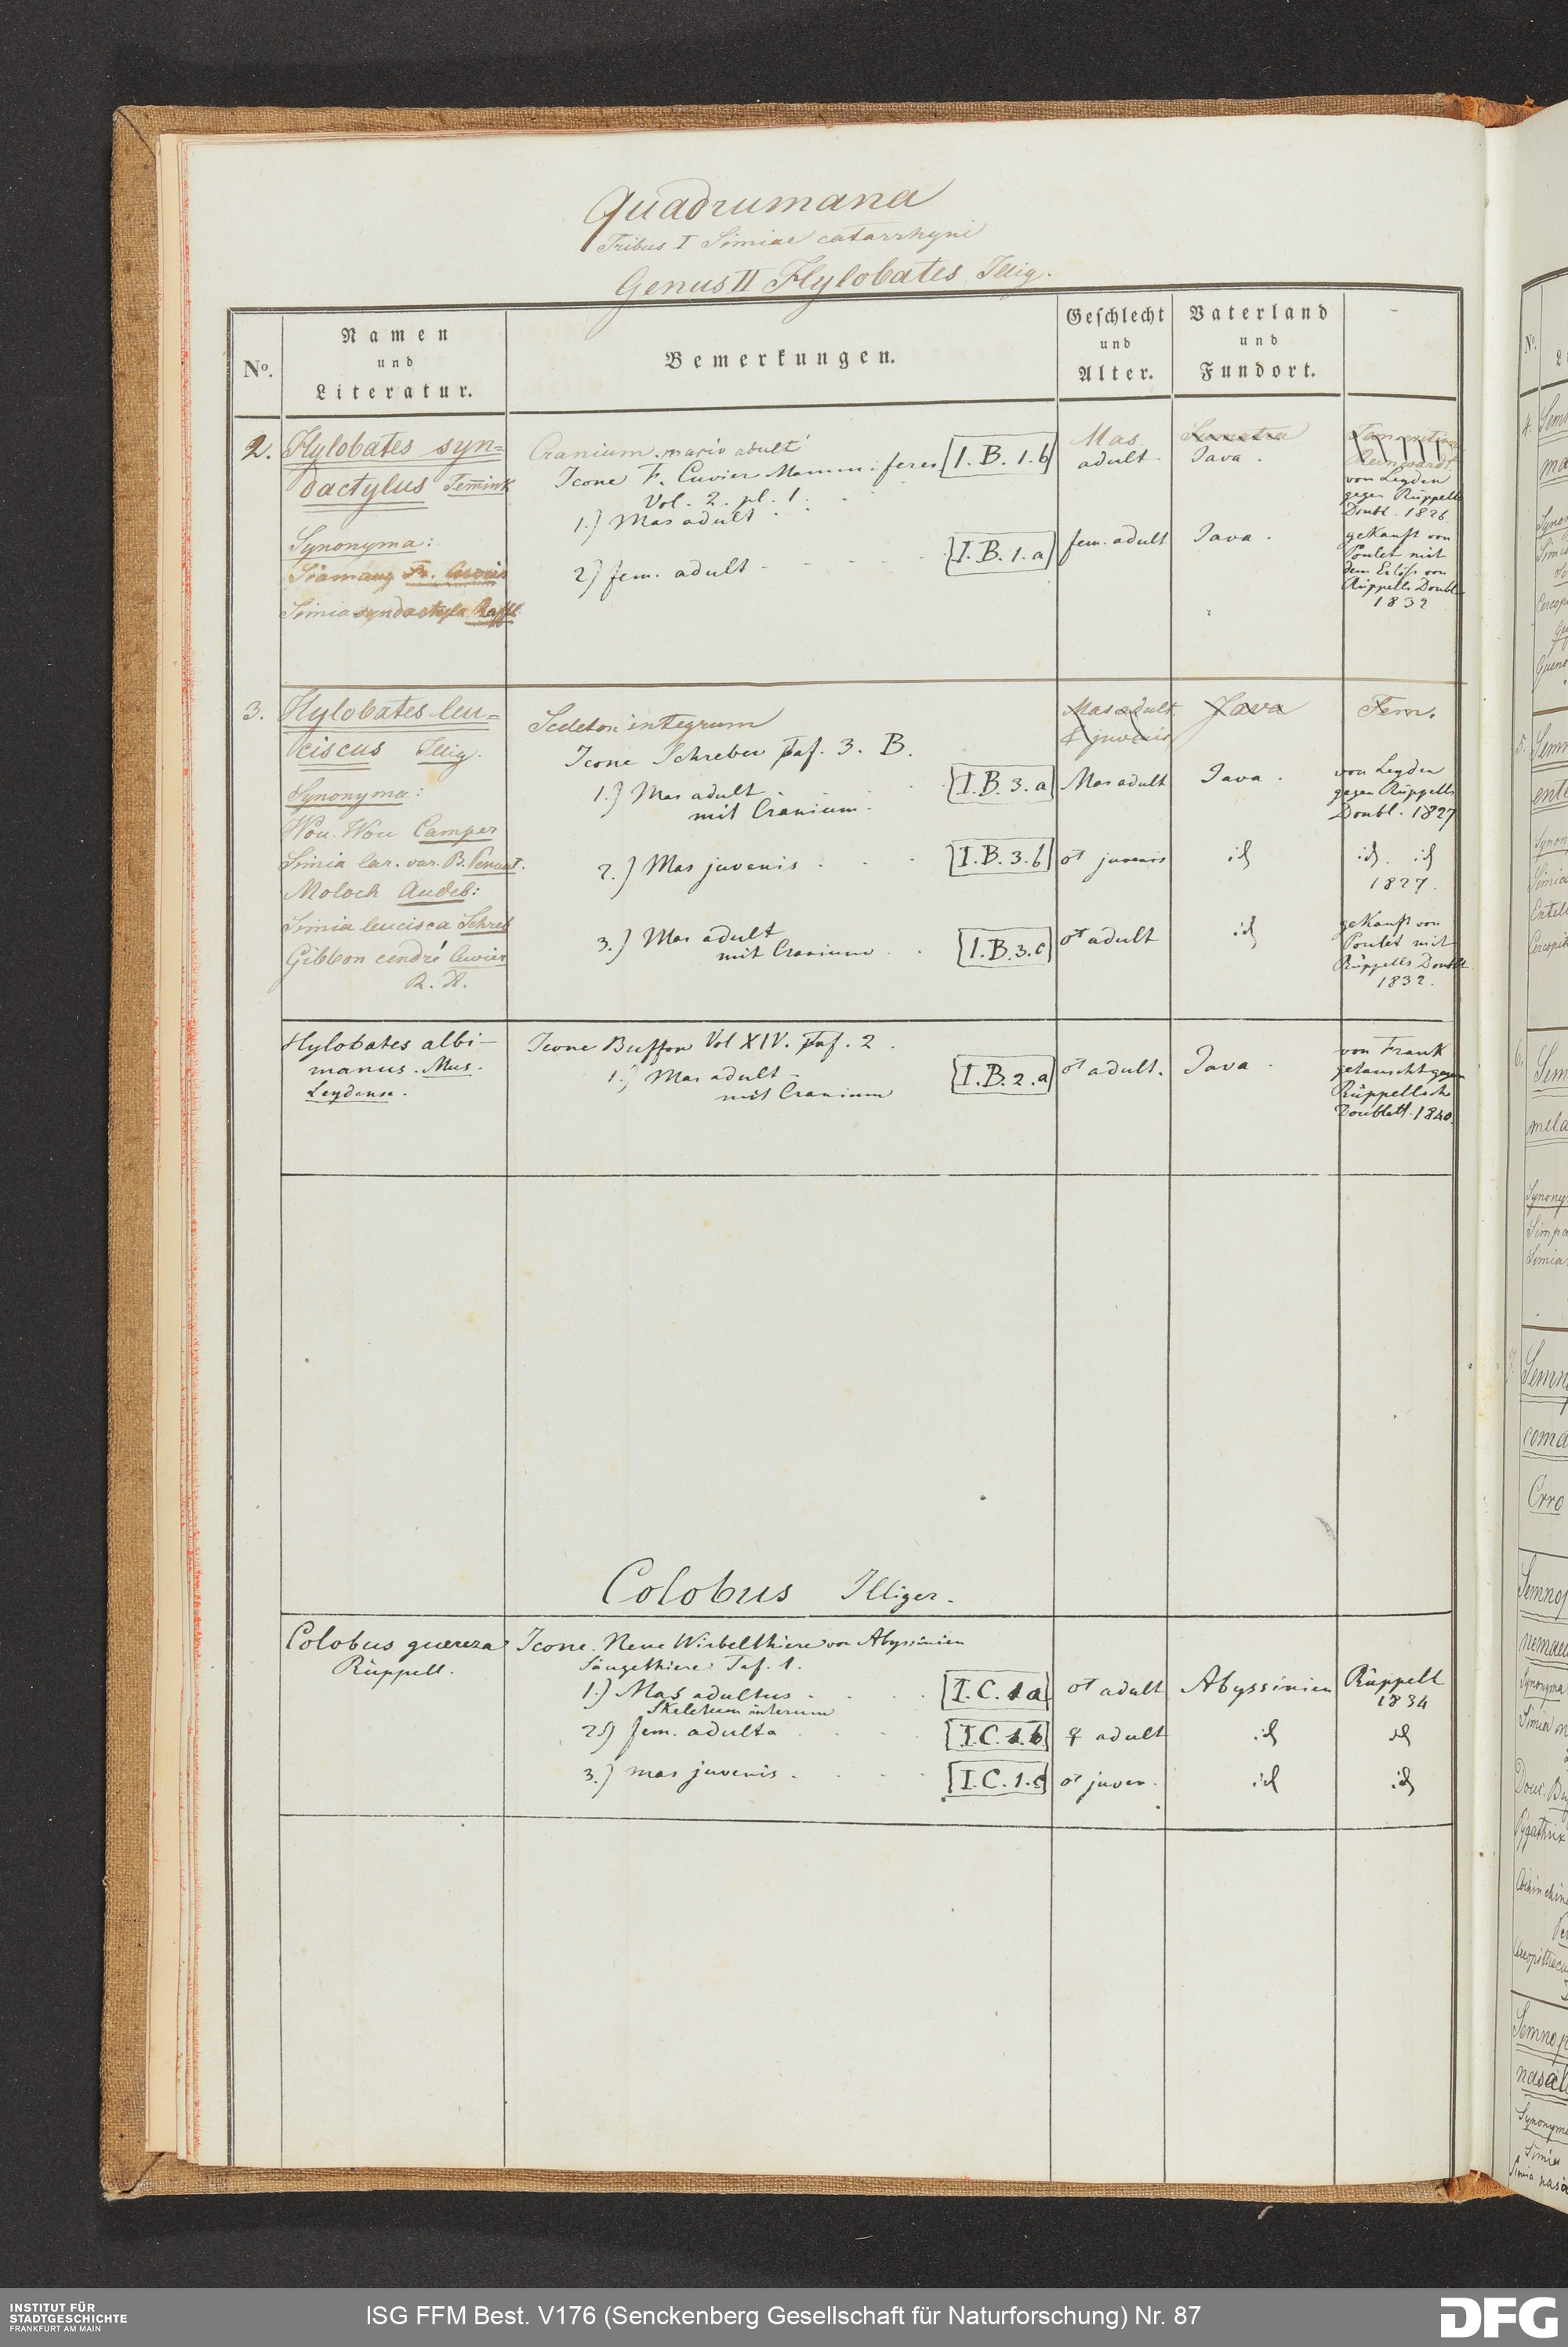 Quadrumana
Tribus I Simiae catarrhyni
Genus II Hylobates Illig.
No.
Namen
und
Literatur.
Bemerkungen.
Geschlecht
und
Alter.
Vaterland
und
Fundort.
2.
Hylobates syn=
dactylus Temink
Synonyma:
Siamang Fr. Cuvier
Simia syndactyla Raffl.
Cranium. maris adult
Icone F. Cuvier Mammiferes
Vol. 2. pl. 1.
1.) Mas adult
I.B.1.b
Mas
adult
Sumatra
Java.
Reinwardt.
von Leyden
gegen Rüppells
Doubl. 1826.
2) fem. adult
I.B.1.a
fem. adult
Java.
gekauft von
Poulet mit
dem Erlöss von
Rüppells Doubl.
1832
3.
Hylobates leu=
ciscus Illig.
Synonyma:
Wou-Wou Camper
Simia lar. var. B. Pennat.
Moloch Audeb:
Simia leucisca Schreb
Gibbon cendré Cuvier
R. A.
Sceleton integrum
Icone Schreber Taf. 3. B.
Mas adult
& juvenis
Java
Tem.
1.) Mas adult
mit Cranium.
I.B.3.a
Mas adult
Java.
von Leyden
gegen Rüppells
Doubl. 1827
2.) Mas juvenis
I.B.3.b
♂ juvenis
id
id. id
1827.
3.) Mas adult
mit Cranium
I.B.3.c
♂ adult
id
gekauft von
Poulet mit
Rüppells Doubl
1832.
Hylobates albi-
manus. Mus.
Leydense.
Icone Buffon Vol XIV. Taf. 2.
1.) Mas adult
mit Cranium
I.B.2.a
♂ adult.
Java.
von Frank
getauscht gegen
Rüppellsche
Doublett. 1840.
Colobus Illiger.
Colobus guereza
Rüppell.
Icone. Neue Wirbelthiere von Abyssinien
Säugethiere Taf. 1.
1.) Mas adultus
Skeletum internum
I.C.1.a
♂ adult
Abyssinien
Rüppell
1834
2) fem. adulta
I.C.1.b
♀ adult
id
id
3.) mas juvenis.
I.C.1.c
♂ juven.
id
id
INSTITUT FÜR
STADTGESCHICHTE
FRANKFURT AM MAIN
ISG FFM Best. V176 (Senckenberg Gesellschaft für Naturforschung) Nr. 87
DFG